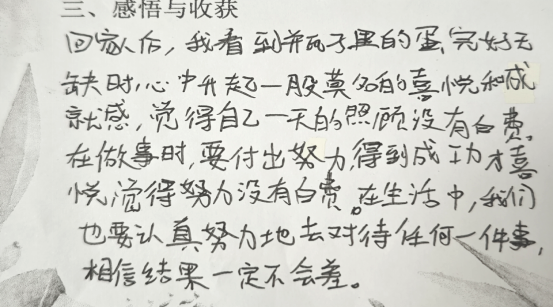 三、感悟与收获
回家后,我看到并瓦子里的蛋完好无
缺时,心中升起一股莫名的喜悦和成
就感,觉得自己一天的照顾没有白费。
在做事时,要付出努力,得到成功才喜
悦,觉得努力没有白费。在生活中,我们
也要认真努力地去对待任何一件事,
相信结果一定不会差。